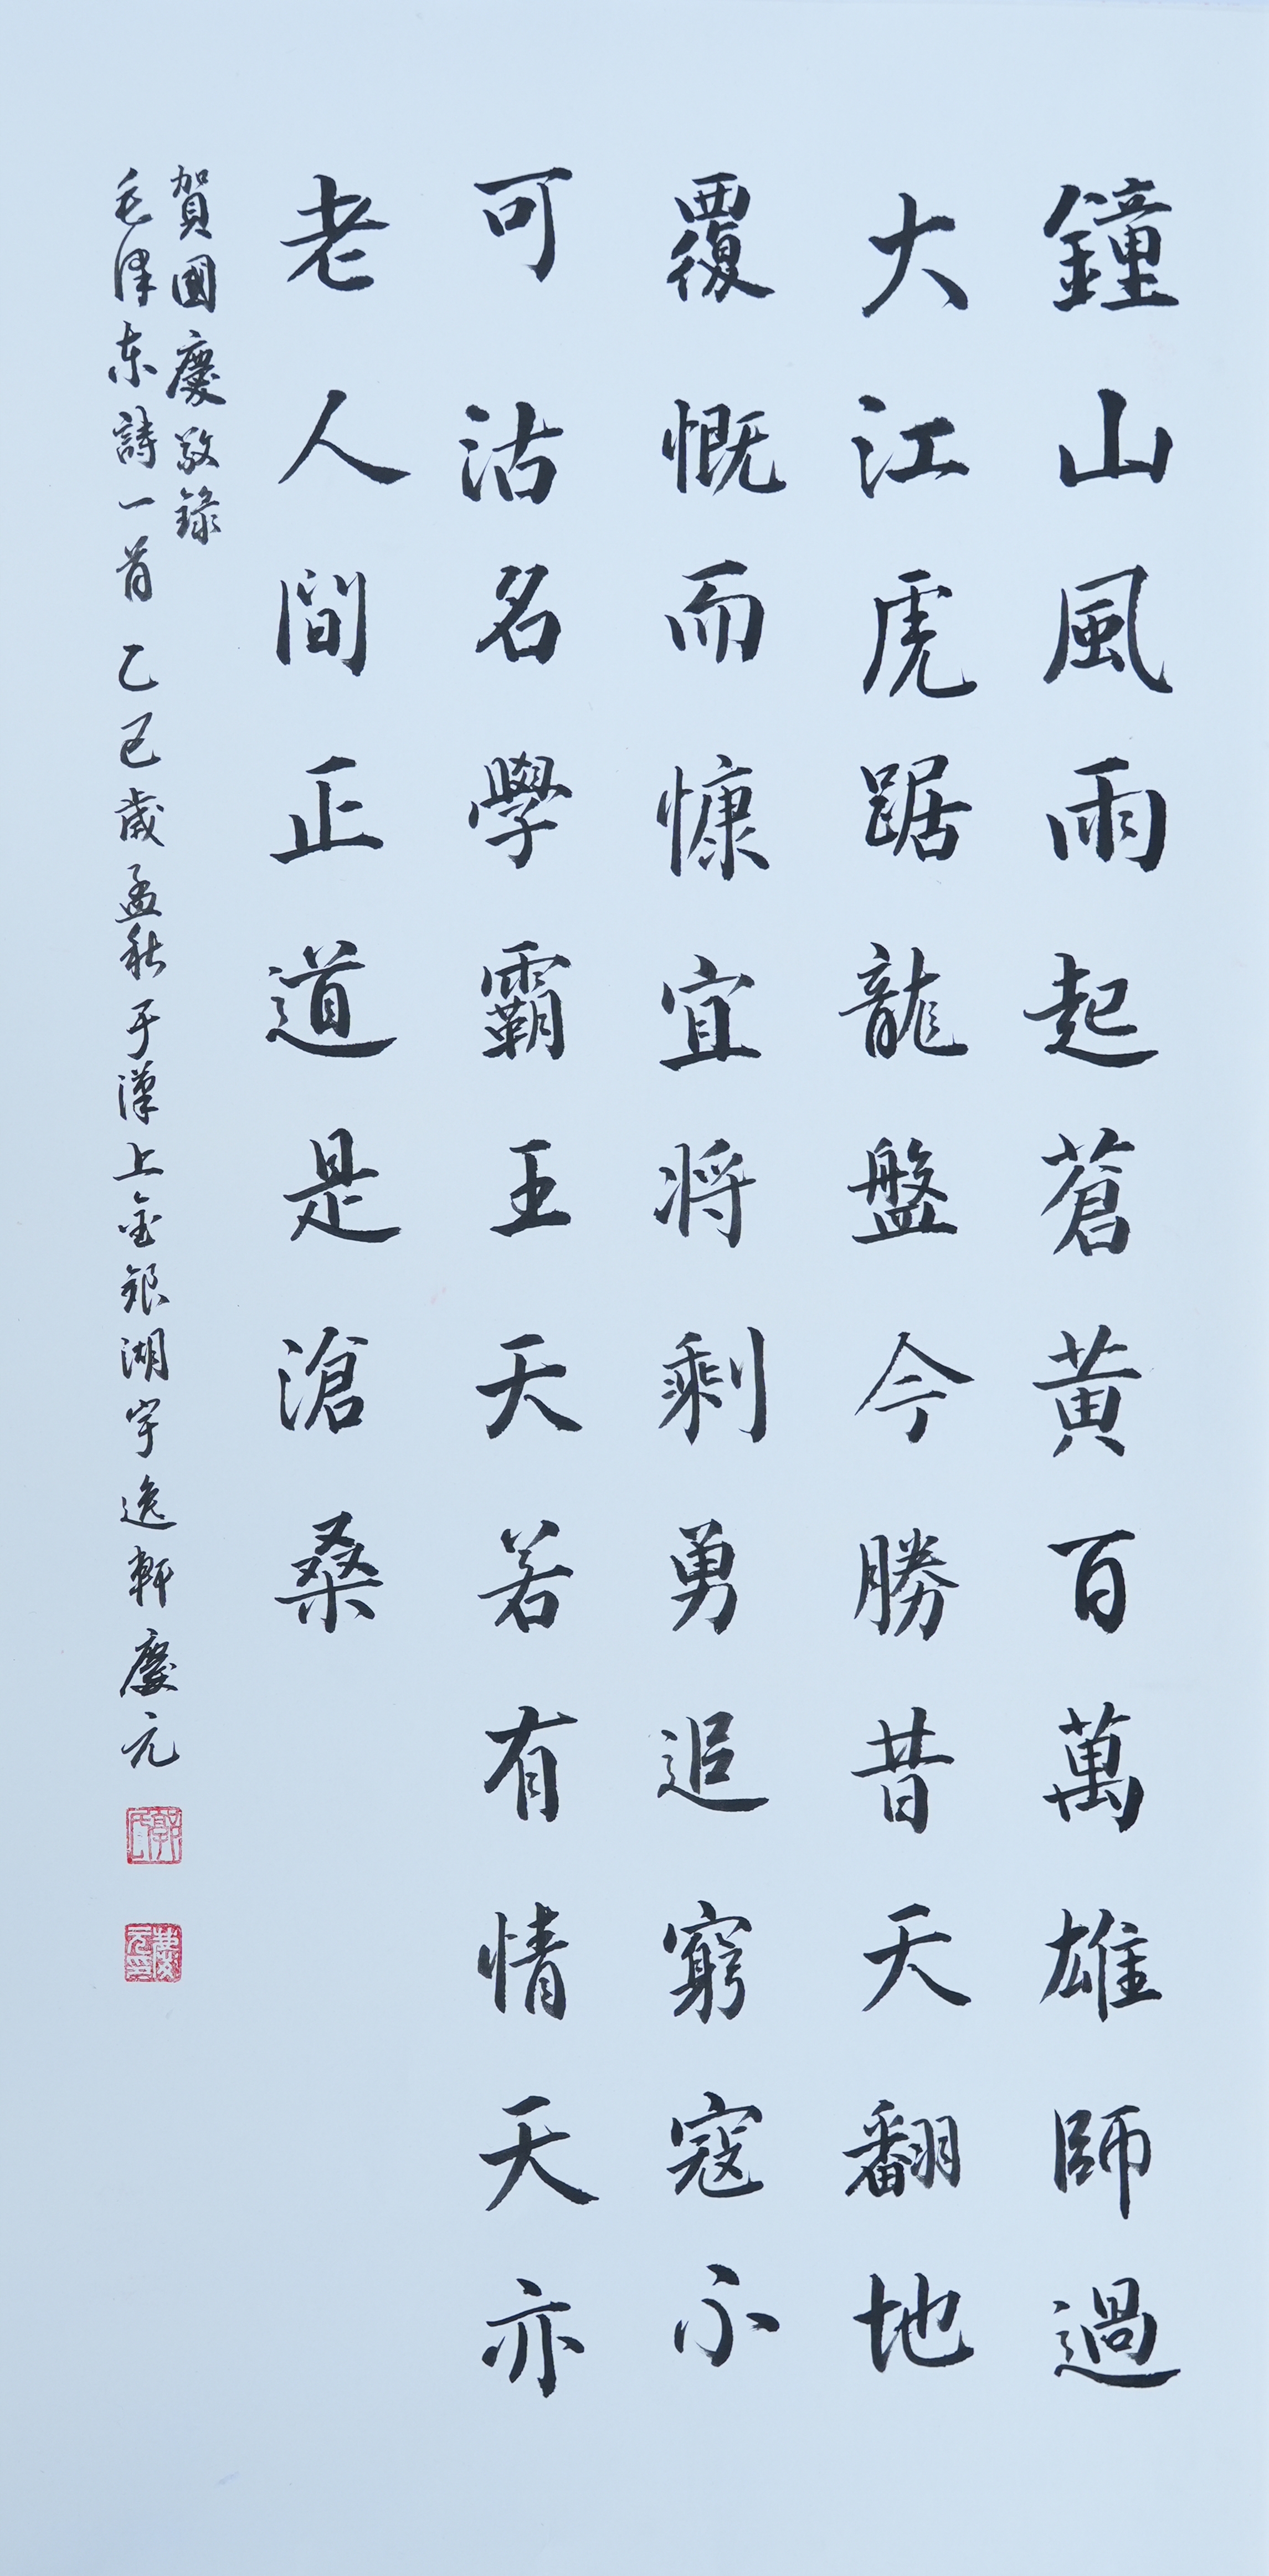 鐘山風雨起蒼黃百萬雄師過
大江虎踞龍盤今勝昔天翻地
覆慨而慷宜將剩勇追窮寇不
可沽名學霸王天若有情天亦
老人間正道是滄桑
賀國慶敬錄
毛澤东詩一首乙巳歲孟秋于漢上金銀湖宇逸軒慶元
郭氏
慶元印